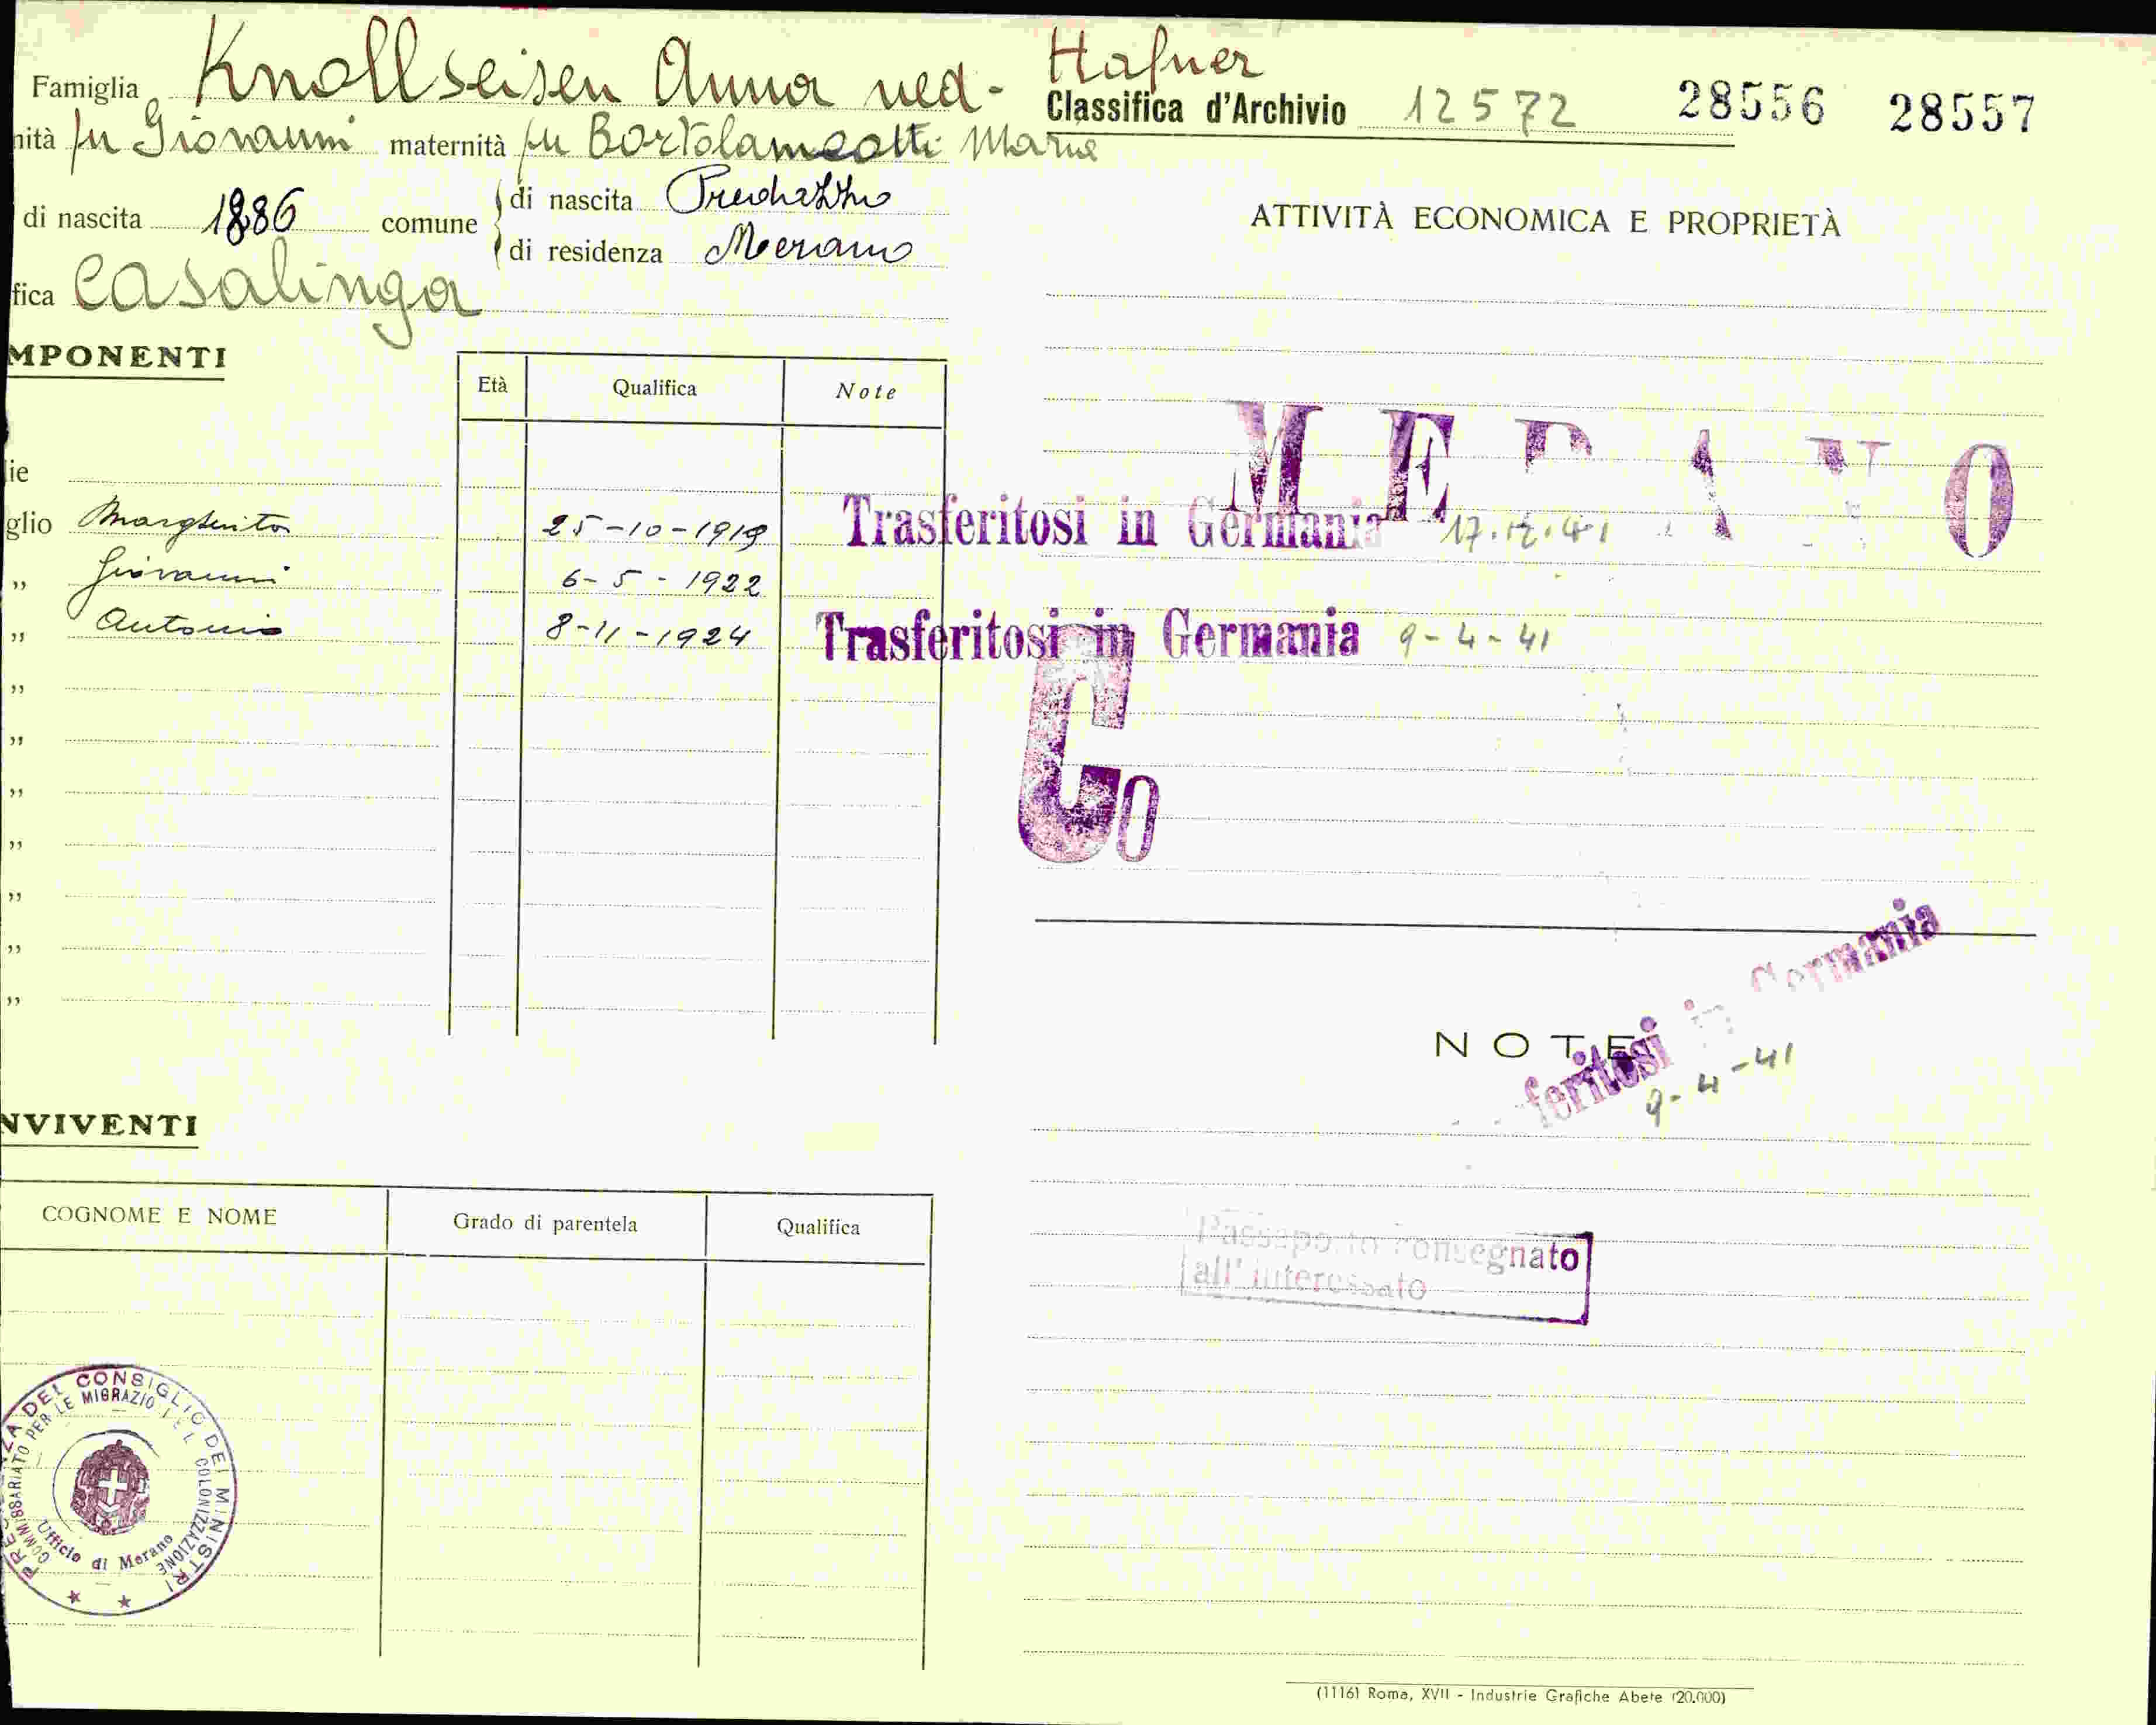 Famiglia Knollseisen Anna ved. Hafner
Classifica d'Archivio 12572 28556 28557
nità fu Giovanni maternità fu Bortolameotti Maria
di nascita 1886 comune di nascita Predazzo
di residenza Merano
fica Casalinga
ATTIVITÀ ECONOMICA E PROPRIETÀ
MPONENTI
Età Qualifica Note
MERANO
lie
glio Margherita 25-10-1919 Trasferitosi in Germania 17.12.41
" Giovanni 6-5-1922
" Antonio 8-11-1924 Trasferitosi in Germania 9-4-41
"
"
"
"
"
"
"
Co
NOTE
feritosi in Germania
9-4-41
NVIVENTI
COGNOME E NOME Grado di parentela Qualifica
Passaporto consegnato
all'interessato
PRESIDENZA DEL CONSIGLIO DEI MINISTRI
COMMISSARIATO PER LE MIGRAZIONI E L COLONIZZAZIONE
Ufficio di Merano
(1116) Roma, XVII - Industrie Grafiche Abete (20.000)